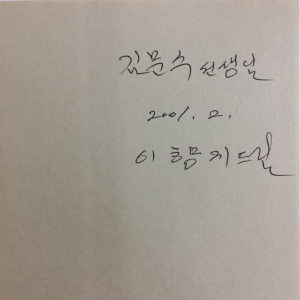 김문수 선생님
2001. 2.
이흠지 드림